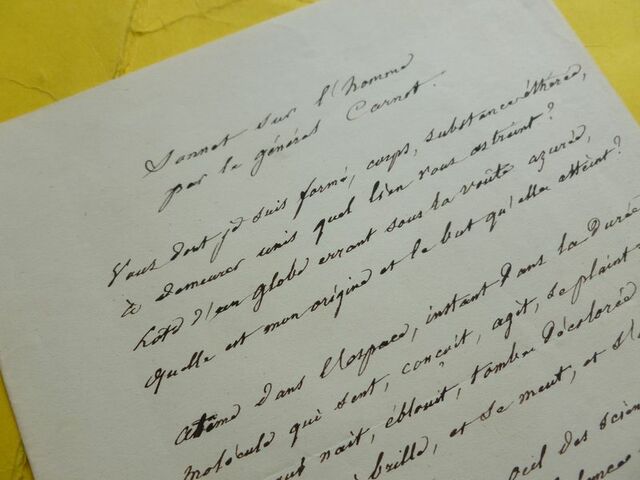 Sonnet sur l'homme
par le général Carnot.
Vous dont je suis formé, corps, substance éthérée,
à demeurer unis quel lien vous astreint?
hôte d'un globe errant sous la voûte azurée,
quelle est mon origine et le but qu'elle atteint?
atôme dans l'espace, instant dans la Durée
molécule qui sent, conçoit, agit, se plaint
nait, éblouit, tombe Décolorée
brille, et se meut, et
des